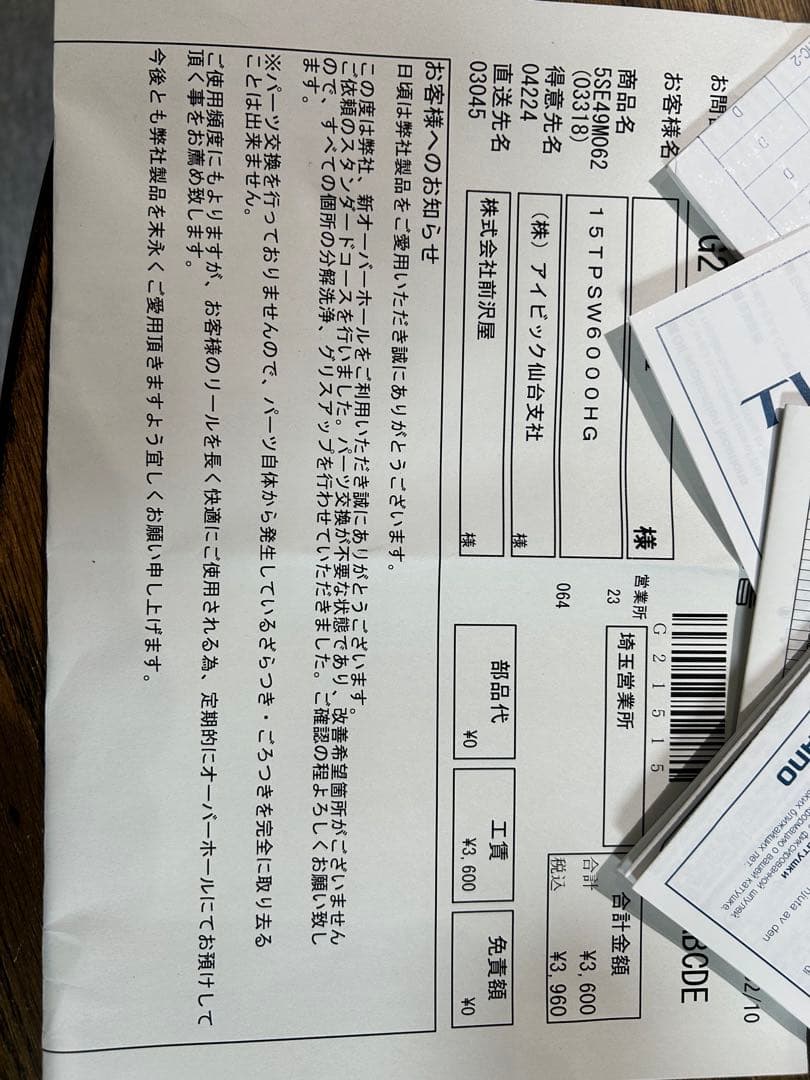 お問
お客様名
様
G2
商品名
5SE49M062
(03318)
15TPSW6000HG
得意先名
04224
(株)アイビック仙台支社
様
064
直送先名
03045
株式会社前沢屋
様
営業所
23
埼玉営業所
G21515
BCDE
2/10
合計金額
合計 ¥3,600
税込 ¥3,960
部品代
¥0
工賃
¥3,600
免責額
¥0
お客様へのお知らせ
日頃は弊社製品をご愛用いただき誠にありがとうございます。
この度は弊社、新オーバーホールをご利用いただき誠にありがとうございます。
ご依頼のスタンダードコースを行いました。パーツ交換が不要な状態であり、改善希望箇所がございません
ので、すべての個所の分解洗浄、グリスアップを行わせていただきました。ご確認の程よろしくお願い致し
ます。
※パーツ交換を行っておりませんので、パーツ自体から発生しているざらつき・ごろつきを完全に取り去る
ことは出来ません。
ご使用頻度にもよりますが、お客様のリールを長く快適にご使用される為、定期的にオーバーホールにてお預けして
頂く事をお薦め致します。
今後とも弊社製品を末永くご愛用頂きますよう宜しくお願い申し上げます。